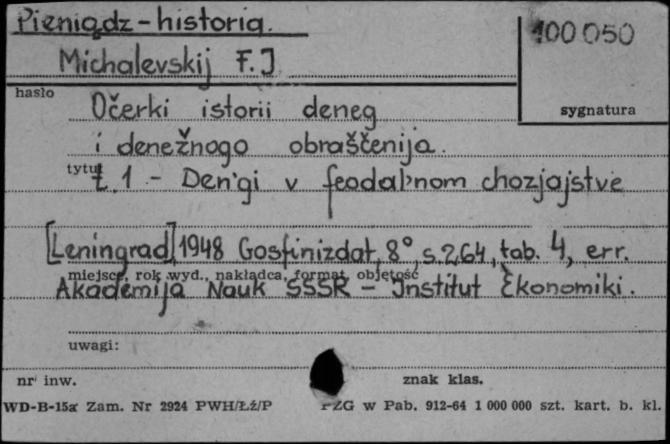 Pieniądz - historia.
100050
Michalevskij F. J
hasło
sygnatura
Očerki istorii deneg
i denežnogo obraščenija.
tytuł
t. 1 - Den'gi v feodal'nom chozjajstve
[Leningrad] 1948 Gosfinizdat, 8°, s. 264, tab. 4, err.
miejsce, rok wyd., nakładca, format, objętość
Akademija Nauk SSSR - Institut Ėkonomiki.
uwagi:
nr inw.
znak klas.
WD-B-15a Zam. Nr 2924 PWH/Łź/P
PZG w Pab. 912-64 1 000 000 szt. kart. b. kl.